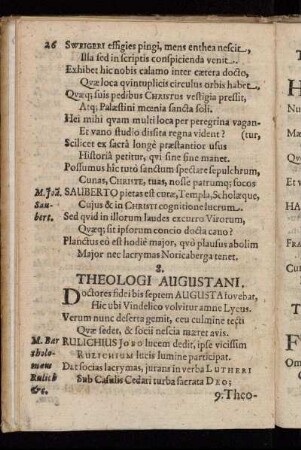 26 SWEIGERI effigies pingi, mens enthea nescit,
Illa sed in scriptis conspicienda venit.
Exhibet hic nobis calamo inter cætera docto,
Quæ loca quintuplicis circulus orbis habet.
Quæq; suis pedibus CHRISTUS vestigia pressit,
Atq; Palæstini mœnia sancta soli.
Hei mihi quam multi loca per peregrina vagan-
Et vano studio dissita regna vident? (tur,
Scilicet ex sacrâ longè præstantior usus
Historiâ petitur, qvi sine fine manet.
Possumus hic tutò sanctum spectare sepulchrum,
Cunas, CHRISTE, tuas, nosse patrumq; focos
M. Joh. SAUBERTO pietas est curæ, Templa, Scholæque,
Sau- Cujus & in CHRISTI cognitione lucrum.
bert. Sed qvid in illorum laudes excurro Virorum,
Qvæq; sit ipsorum concio docta cano?
Planctus eò est hodiè major, quò plausus abolim
Major nec lacrymas Noricaberga tenet.
8.
THEOLOGI AUGUSTANI.
Doctores fidei bis septem AUGUSTA fovebat,
Hic ubi Vindelico volvitur amne Lycus.
Verum nunc deserta gemit, ceu culmine tecti
Quæ sedet, & socii nescia mæret avis.
M. Bar RULICHIUS JOBO lucem dedit, ipse vicissim
tholo- RULICHIUM lucis lumine participat.
mæus Dat socias lacrymas, jurans in verba LUTHERI
Rulich Sub Casulis Cedari turba sacrata DEO;
&c.
9. Theo-